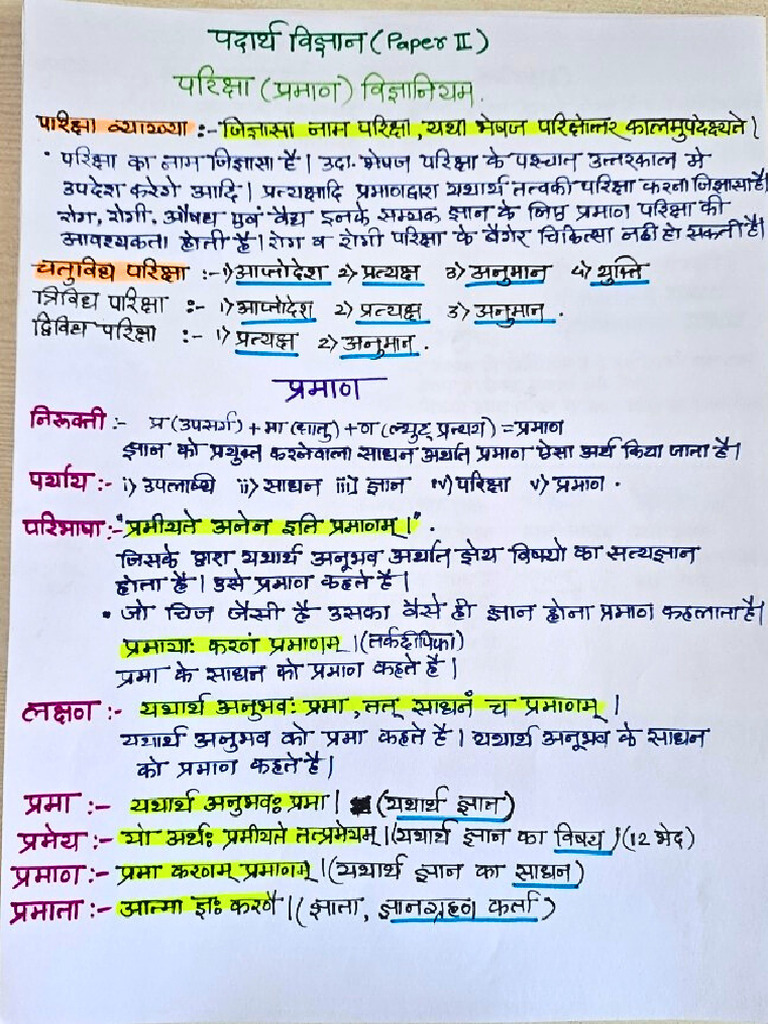 पदार्थ विज्ञान (Paper II)
परिक्षा (प्रमाण) विज्ञानियम.
परिक्षा व्याख्या :- जिज्ञासा नाम परिक्षा, यथा भेषज परिक्षोत्तर कालमुपदेक्ष्यते।
• परिक्षा का नाम जिज्ञासा है। उदा. भेषज परिक्षा के पश्चात उत्तरकाल मे
उपदेश करेगे आदि। प्रत्यक्षादि प्रमाणद्वारा यथार्थ तत्वकी परिक्षा करना जिज्ञासा है।
रोग, रोगी, औषध एवं वैद्य इनके सम्यक ज्ञान के लिए प्रमाण परिक्षा की
आवश्यकता होती है। रोग व रोगी परिक्षा के बैगेर चिकित्सा नही हो सकती है।
चतुविध परिक्षा :- १) आप्तोदेश २) प्रत्यक्ष ३) अनुमान ४) युक्ति
त्रिविध परिक्षा :- १) आप्तोदेश २) प्रत्यक्ष ३) अनुमान.
द्विविध परिक्षा :- १) प्रत्यक्ष २) अनुमान.
प्रमाण
निरूक्ती :- प्र (उपसर्ग) + मा (धातु) + ण (ल्युट् प्रत्यय) = प्रमाण
ज्ञान को प्रयुक्त करनेवाला साधन अर्थात प्रमाण ऐसा अर्थ किया जाता है।
पर्याय :- i) उपलब्धि ii) साधन iii) ज्ञान iv) परिक्षा v) प्रमाण.
परिभाषा :- "प्रमीयते अनेन इति प्रमाणम्।".
जिसके द्वारा यथार्थ अनूभव अर्थात ज्ञेय विषयो का सत्यज्ञान
होता है। उसे प्रमाण कहते है।
• जो चिज जैसी है उसका वैसे ही ज्ञान होना प्रमाण कहलाता है।
प्रमायाः करणं प्रमाणम।(तर्कदीपिका)
प्रमा के साधन को प्रमाण कहते है।
लक्षण :- यथार्थ अनुभवः प्रमा, तत् साधनं च प्रमाणम्।
यथार्थ अनुभव को प्रमा कहते है। यथार्थ अनूभव के साधन
को प्रमाण कहते है।
प्रमा :- यथार्थ अनुभवः प्रमा। (यथार्थ ज्ञान)
प्रमेय :- यो अर्थः प्रमीयते तत्प्रमेयम्।(यथार्थ ज्ञान का विषय)(12 भेद)
प्रमाण :- प्रमा करणम् प्रमाणम्।(यथार्थ ज्ञान का साधन)
प्रमाता :- आत्मा ज्ञः करणै।(ज्ञाता, ज्ञानग्रहण कर्ता)